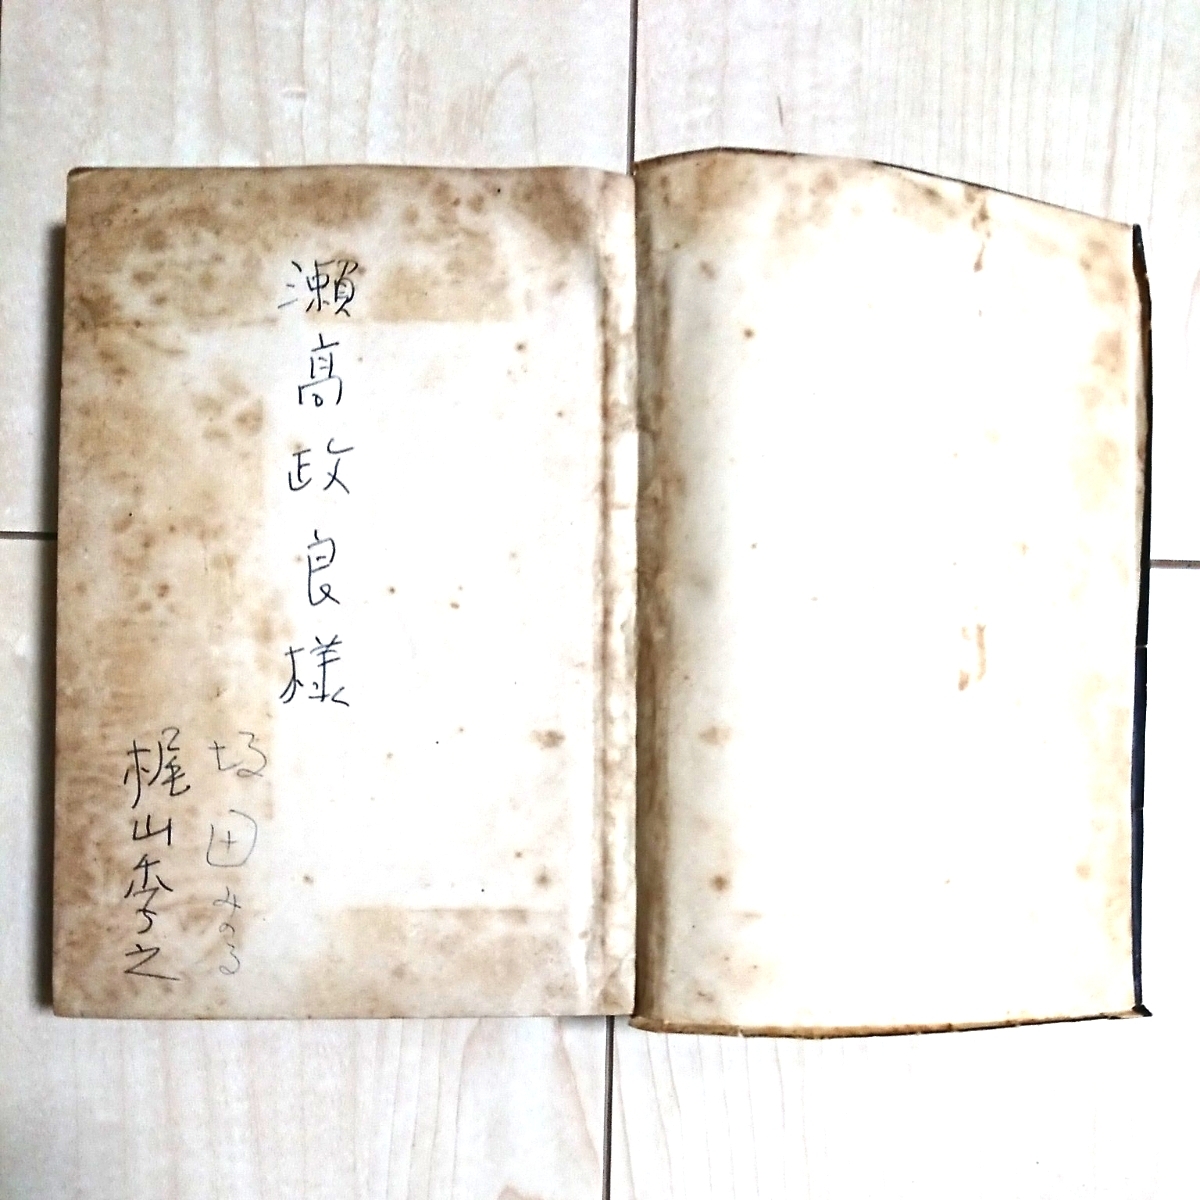 瀬高政良様
坂田みのる
梶山季之